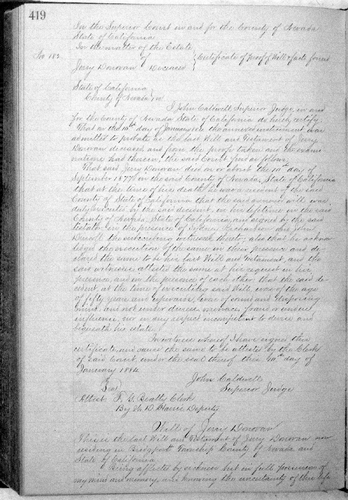 419
In the Superior Court in and for the County of Nevada
State of California
In the matter of the Estate
No 183 of Certificate of Proof of Will & facts found
Jerry Donovan Deceased
State of California
County of Nevada
I John Caldwell Superior Judge in and
for the County of Nevada State of California do hereby certify
That on the day of January the annexed instrument was
admitted to probate as the last Will and Testament of Jerry
Donovan deceased and from the proofs taken and the exami
nations had therein the said Court finds as follows
That said Jerry Donovan died on or about the 10th day of
September 1879 in the said County of Nevada, State of California
that at the time of his death he was a resident of the said
County of Nevada State of California that the said annexed will was
duly executed by the said decedent in his lifetime in the said
County of Nevada State of California and signed by the said
testator in the presence of and John
the subscribing witnesses thereto and that he acknow
ledged the execution of the same in their presence and de
clared the same to be his last Will and testament, and the
said witnesses attested the same at his request in his
presence, and in the presence of each other that the said de
cedent at the time of executing said Will was of the age
of fifty years and upwards, was of sound and disposing
mind and not under duress menace fraud or undue
influence nor in any respect incompetent to devise and
bequeath his estate
In witness whereof I have signed this
certificate and caused the same to be attested by the Clerk
of said Court under the seal thereof this day of
January
John Caldwell
Superior Judge
Attest F. G. Beatty Clerk
By Deputy
Will of Jerry Donovan
This is the last Will and testament of Jerry Donovan now
residing in Bridgeport Township County of Nevada and
State of California
Being afflicted by sickness but in full possession of
my mind and memory and knowing the uncertainty of this life